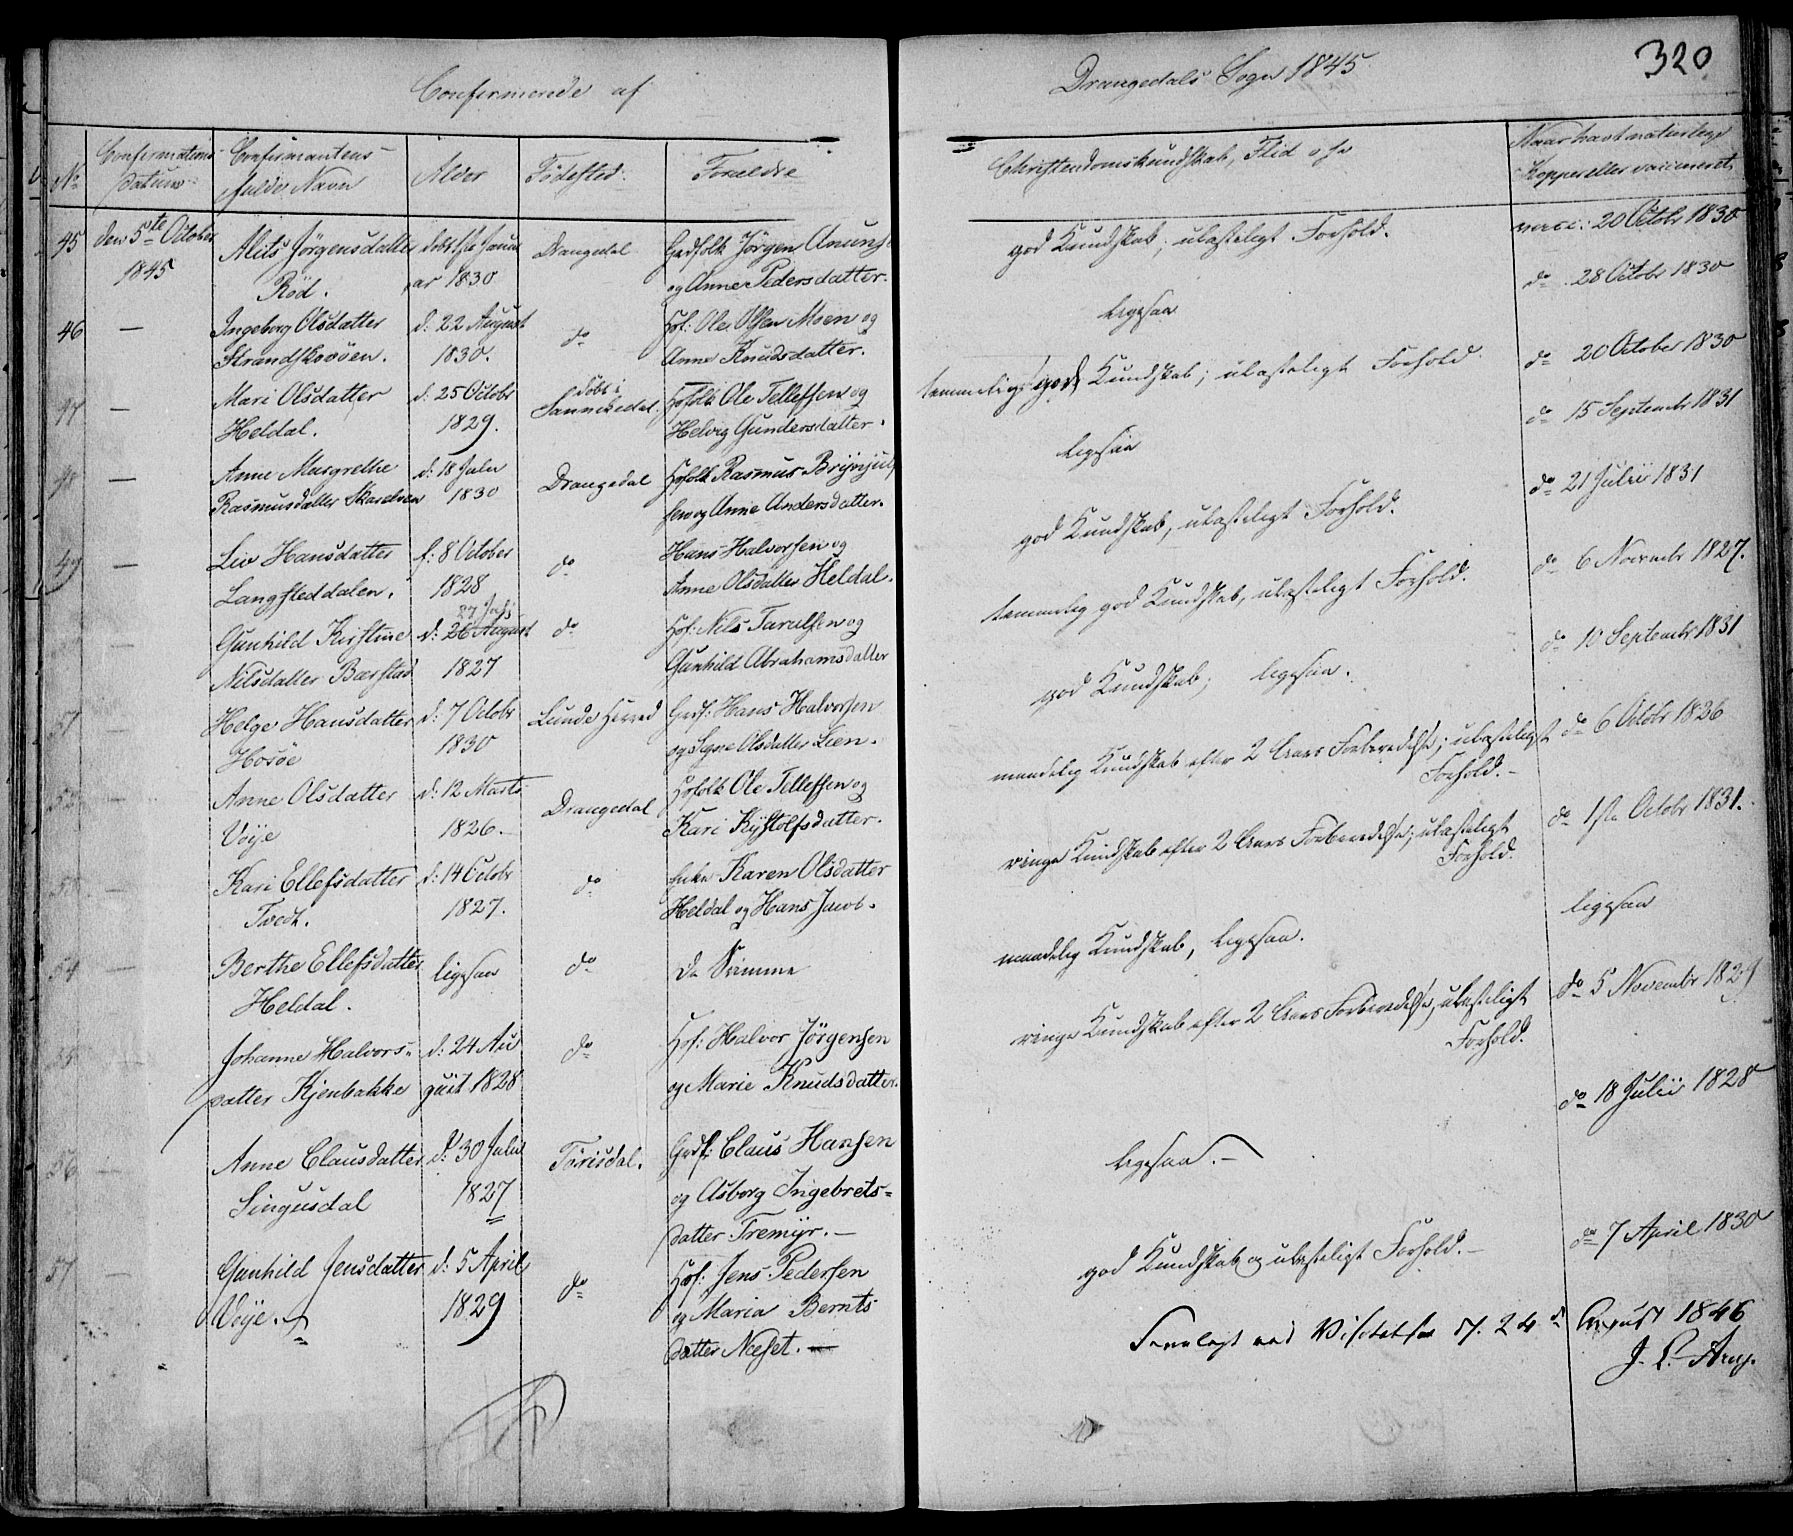 Confirmerede af
Drangedals Sogn 1845
320
No
Confirmations
Datum
Confirmantens
fulde Navn
Alder
Fødested.
Forældre
Christendomskundskab, Flid osv
Naar havt naturlige
Kopper eller vaccineret
45 den 5te October 1845
Alits Jörgensdatter
Röd.
döbt 1ste Janu
ar 1830
Drangedal
Grdfolk Jörgen Anunds
og Anne Pedersdatter.
god Kundskab; ulasteligt Forhold.
vacc: 20 Octobr 1830
46 —
Ingeborg Olsdatter
Strandskovöen.
d: 22 August
1830.
do
Hsf: Ole Olsen Moen og
Anne Knudsdatter.
ligesaa
do 28 Octobr 1830
47 —
Mari Olsdatter
Heldal.
d: 25 Octobr
1829.
döbt i
Sannikedal.
Hsfolk Ole Tellefsen og
Helvig Gundersdatter.
temmelig god Kundskab; ulasteligt Forhold
do 20 October 1830
48 —
Anne Margrethe
Rasmusdatter Skarelven
d: 18 Julii
1830
Drangedal
Hsfolk Rasmus Brijnjulf
sen og Anne Andersdatter.
ligesaa
do 15 Septembr 1831
49 —
Liv Hansdatter
Langsteddalen.
f: 8 October
1828
do
Hans Halvorsen og
Anne Olsdatter Heldal.
god Kundskab, ulasteligt Forhold.
do 21 Julii 1831
—
Gunhild Kirstine
Nilsdatter Barstad
d: 26 August
1827
do
Hsf: Nils Taralsen og
Gunhild Abrahamsdatter
temmelig god Kundskab, ulasteligt Forhold.
do 6 Novembr 1827.
51 —
Helge Hansdatter
Hosöe
d: 7 Octobr
1830
Lunde Herred
Grdf: Hans Halvorsen
og Signe Olsdatter Lien.
god Kundskab; ligesaa.
do 10 Septembr 1831
52 —
Anne Olsdatter
Voje
d: 12 Marts
1826.
Drangedal
Hsfolk Ole Tellefsen og
Kari Kystolfsdatter.
maadelig Kundskab efter 2 Aars Forberedelse; ulasteligt
Forhold.
do 6 Octobr 1826
53 —
Kari Ellefsdatter
Tvedt.
d: 14 Octobr
1827.
do
Enke Karen Olsdatter
Heldal og Hans Jacob.
ringe Kundskab efter 2 Aars Forberedelse; ulasteligt
Forhold.
do 1ste Octobr 1831.
54 —
Berthe Ellefsdatter
Heldal.
ligesaa
do
De Samme
maadelig Kundskab, ligesaa.
ligesaa
55 —
Johanne Halvors-
datter Kjenbakke
d: 24 Au
gust 1828
do
Hsf: Halvor Jörgensen
og Marie Knudsdatter.
ringe Kundskab efter 2 Aars Forberedelse, ulasteligt
Forhold.
do 5 Novembr 1829
56 —
Anne Clausdatter
Singusdal
d: 30 Julii
1827
Törisdal.
Grdf: Claus Hansen
og Asborg Ingebrets-
datter Tremyr. —
ligesaa. —
do 18 Julii 1828
57 —
Gunhild Jensdatter
Voje.
d: 5 April
1829
do
Hsf: Jens Pedersen
og Maria Bernts
datter Næset. —
god Kundskab og ulasteligt Forhold. —
do 7 April 1830
Fremlagt ved Visitatsen d. 24de August 1846
J. L. Arup.